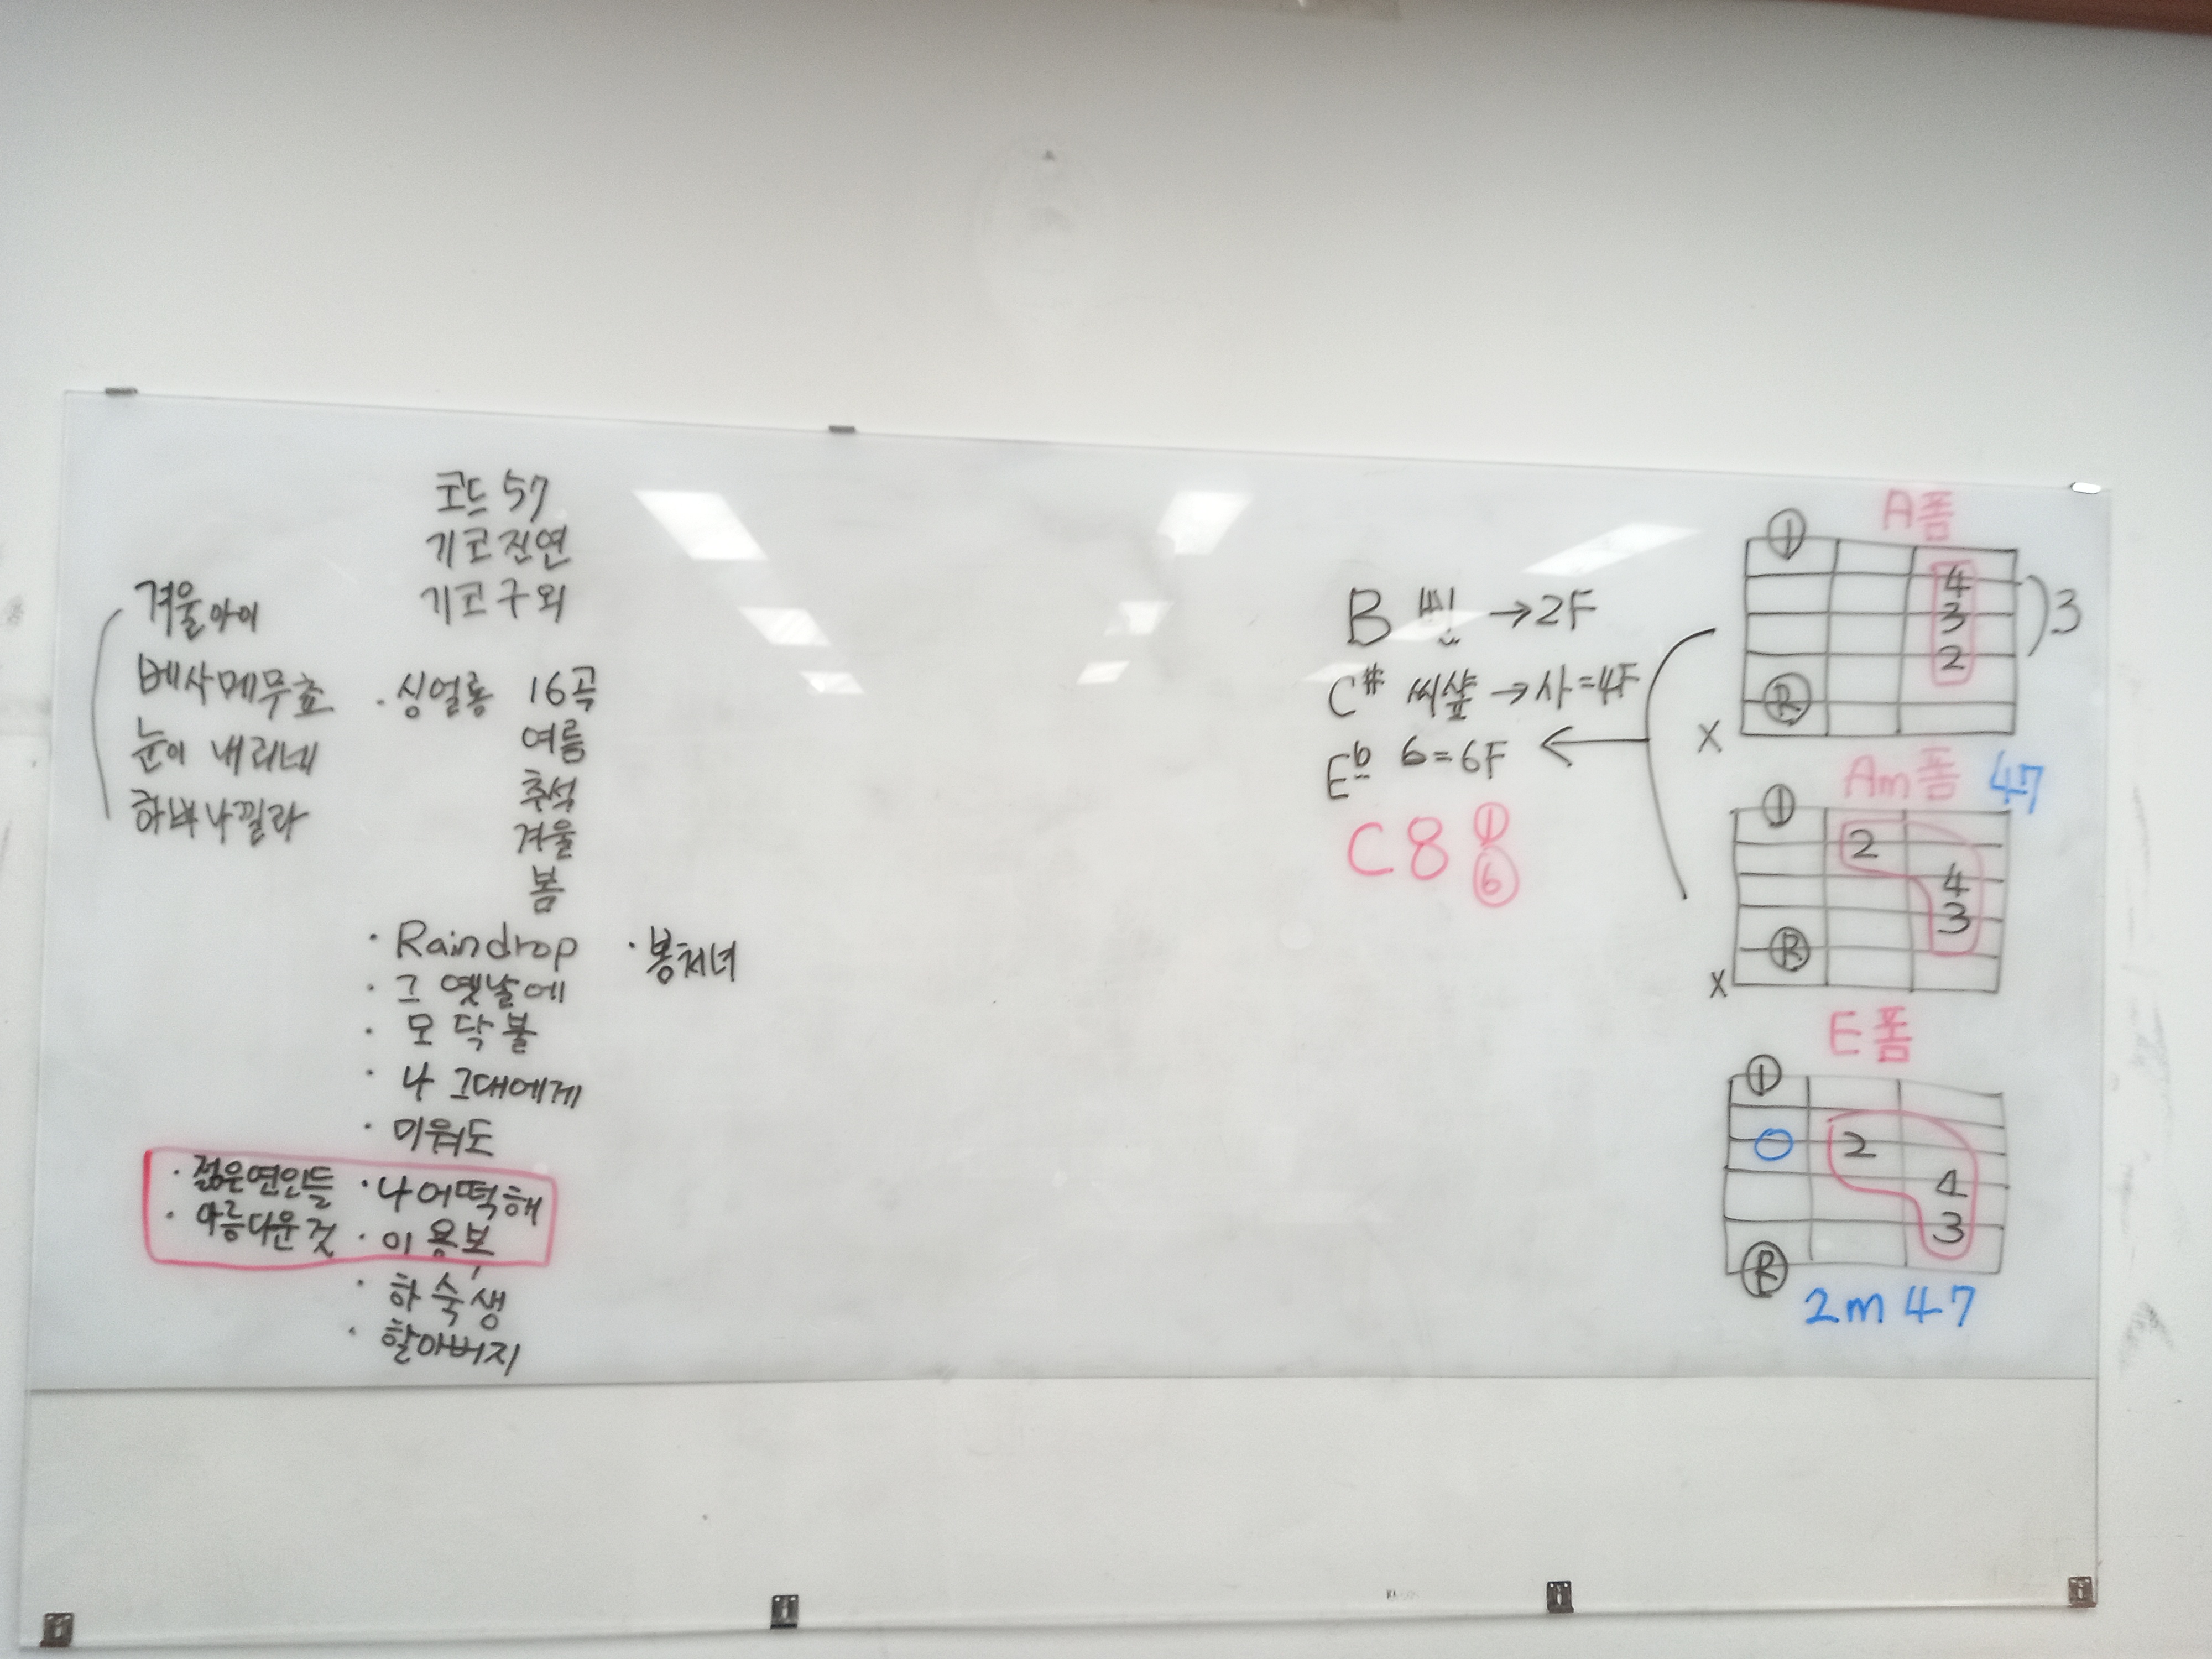 코드 57
기코진연
기코구외
겨울아이
베사메무쵸
눈이 내리네
하바나낄라
· 싱얼롱 16곡
여름
추석
겨울
봄
· Raindrop · 봉처녀
· 그 옛날에
· 모닥불
· 나 그대에게
· 미워도
· 젊은연인들 · 나어떡해
· 아름다운것 · 이용보
· 하숙생
· 할아버지
B 삔 → 2F
C# 씨샾 → 사=4F
Eb 6=6F
C8 ① ⑥
A폼
①
4
3
2
3
Ⓡ
X
Am폼 47
①
2
4
3
Ⓡ
X
E폼
①
0 2
4
3
Ⓡ
2m 47